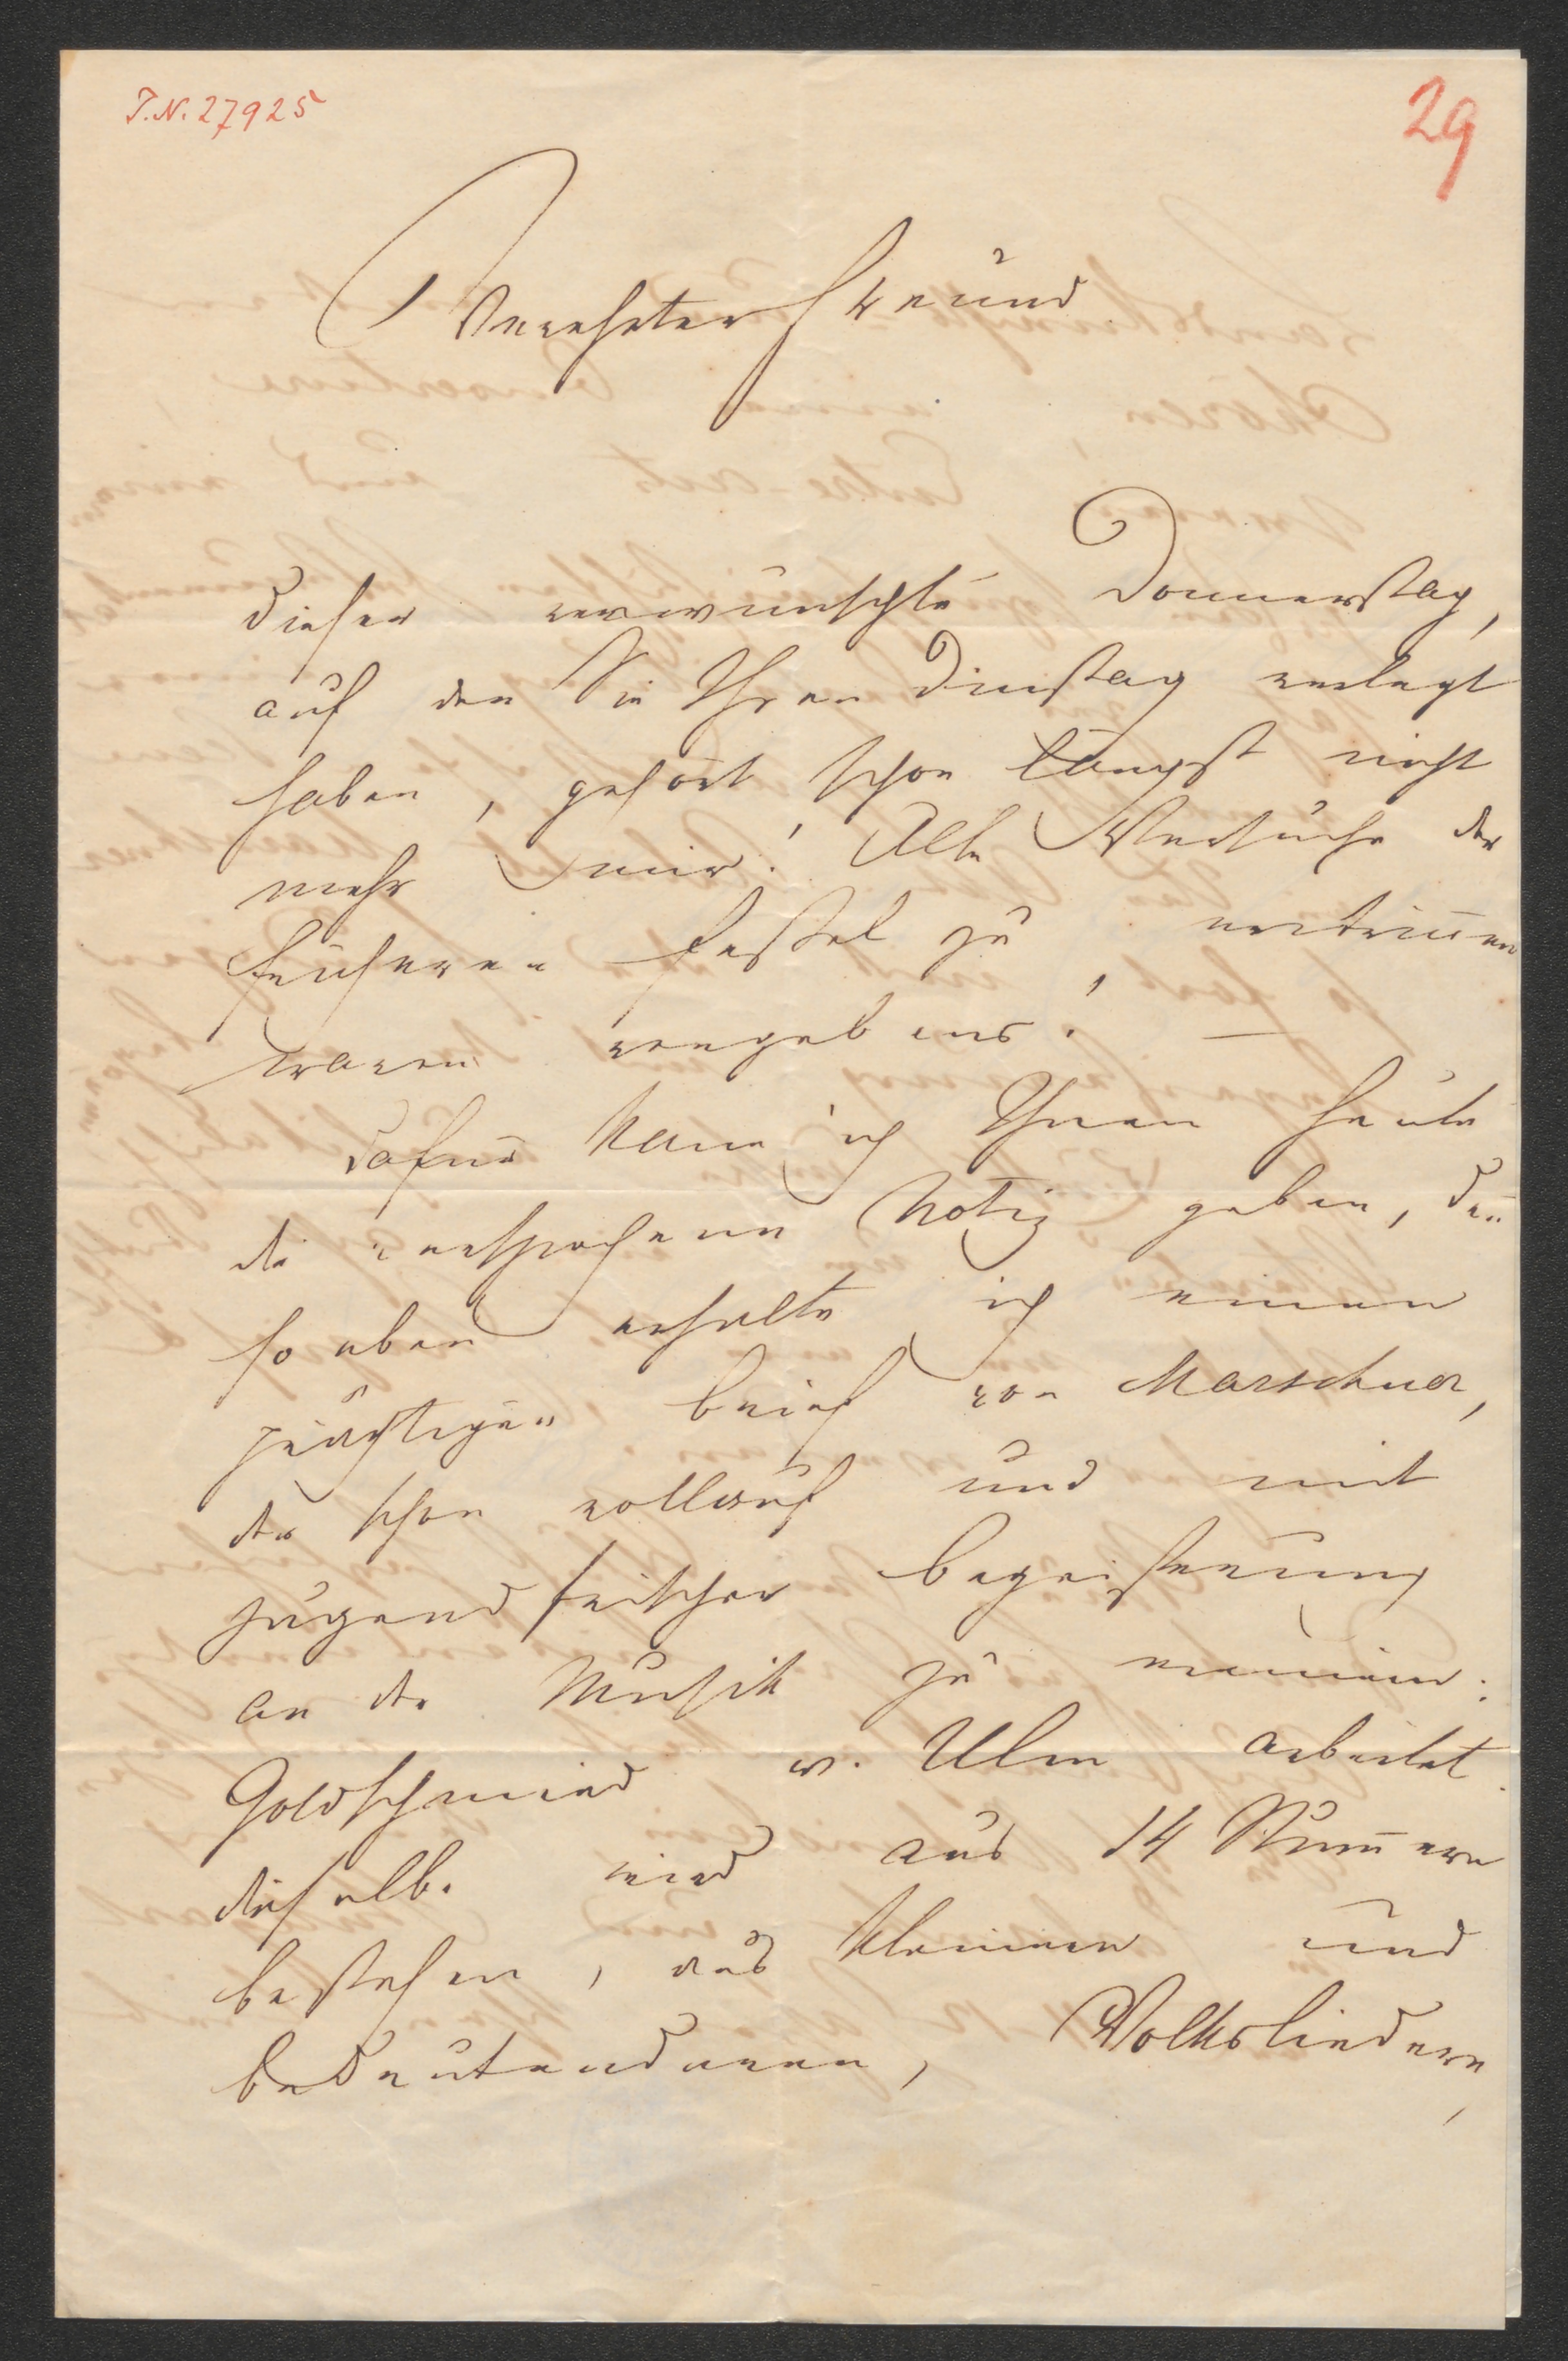 I.N. 27925
29
Verehrter Freund
dieser verwünschte Donnerstag,
auf den Sie Ihren Dinstag verlegt
haben, gehört schon längst nicht
mehr mir! Alle Versuche der
früheren Fessel zu entrinnen
waren vergebens! —
Dafür kann ich Ihnen heute
die versprochene Notiz geben, den̄
so eben erhalte ich einen
prächtigen Brief von Marschner,
der schon vollauf und mit
jugendfrischer Begeisterung
an der Musik zu meinem:
Goldschmied v. Ulm arbeitet.
dieselbe wird aus 14 Num̄ern
bestehen, aus kleinen und
bedeutenderen, Volksliedern,